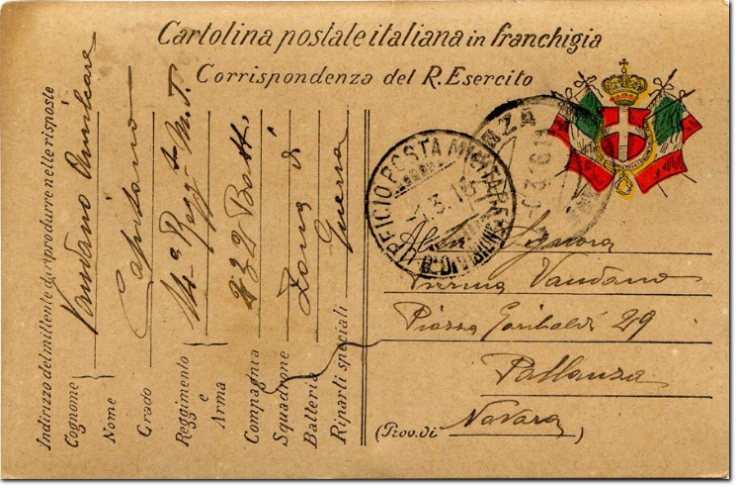 Cartolina postale italiana in franchigia
Corrispondenza del R. Esercito
Indirizzo del mittente da riprodurre nelle risposte
Cognome Vandano Amilcare
Nome
Grado Capitano
Reggimento e Arma Regg. M.T.
Compagnia
Squadrone Zona di
Batteria Guerra
Riparti speciali
UFFICIO POSTA MILITARE
DIVISIONE
NZA
Signora
Vandano
Piazza Garibaldi 29
Pallanza
(Prov. di Novara)